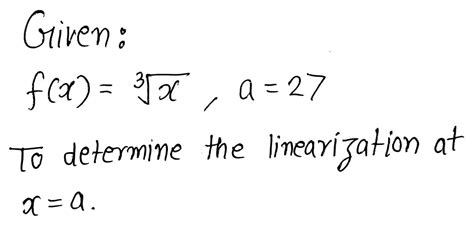 Given:
f(x) = ∛x , a = 27
To determine the linearization at
x = a.